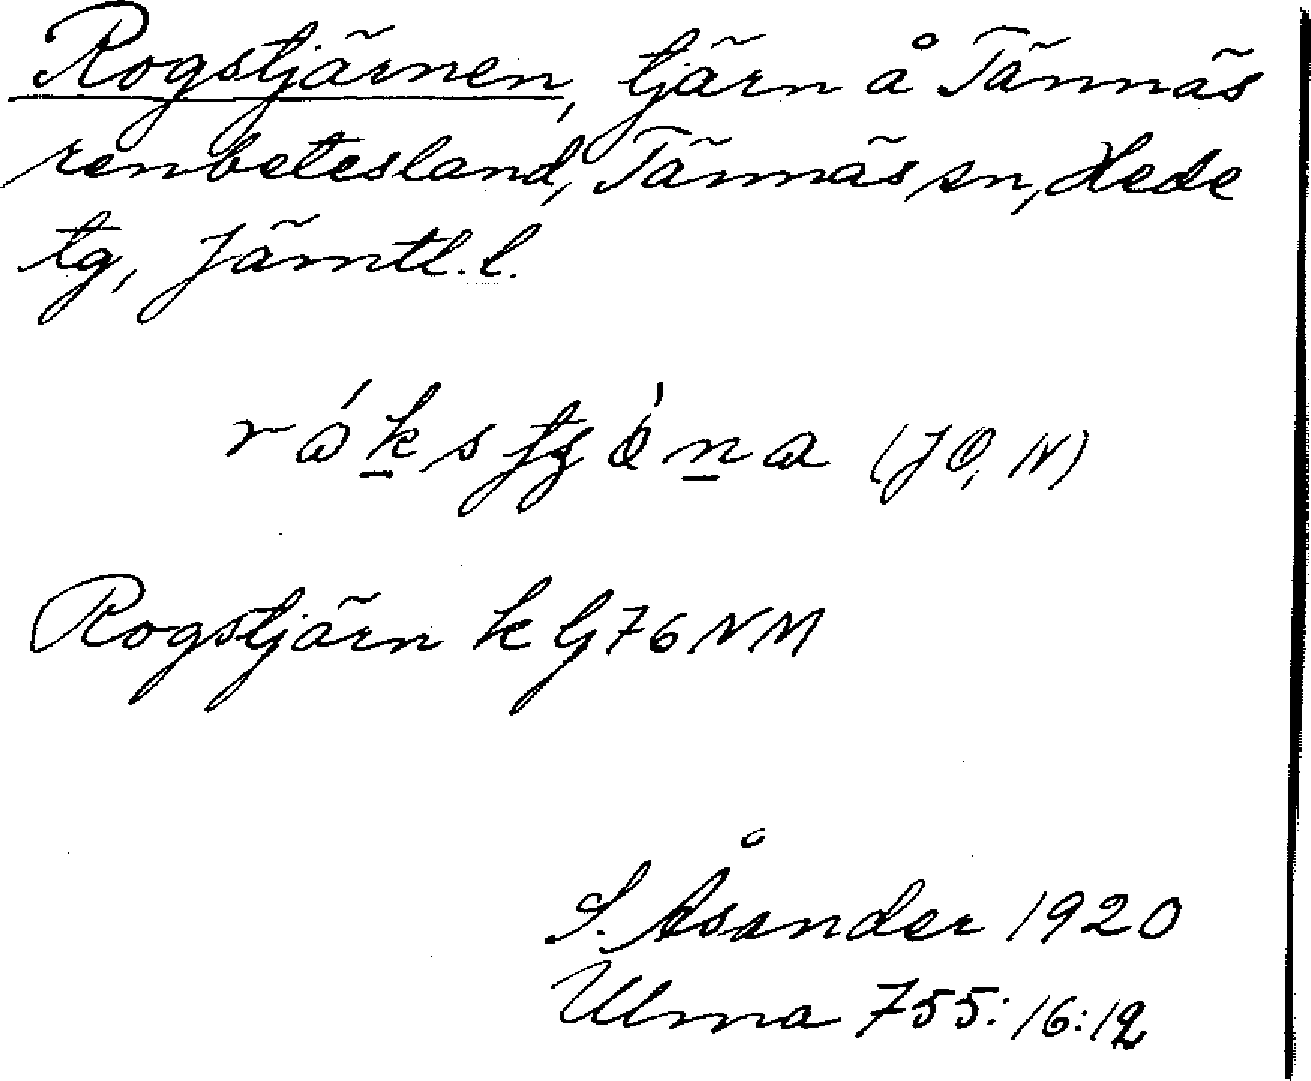 Rogstjärnen, tjärn å Tännäs
renbetesland, Tännäs sn, Hede
tg, Jämtl. l.
(JÖ, N)
Rogstjärn k G76NM
S. Åsander 1920
Ulma 755:16:12